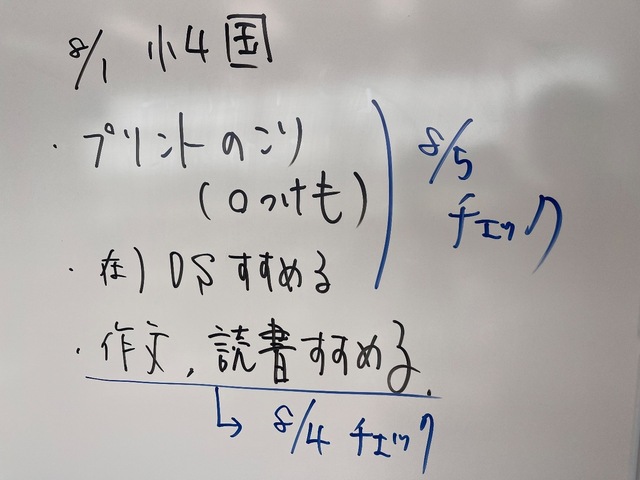 8/1 小4国
・プリントのこり
(〇つけも)
8/5
チェック
・在) DSすすめる
・作文、読書すすめる.
↳ 8/4 チェック